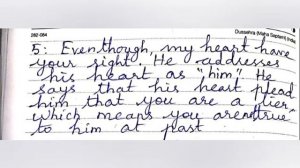 282-084
Dussehra (Maha Saptami) Indi
5: Eventhough, my heart have
your sight. He addresses
his heart as "him". He
says that his heart plead
him that you are a lier,
which means you arentrue
to him at past